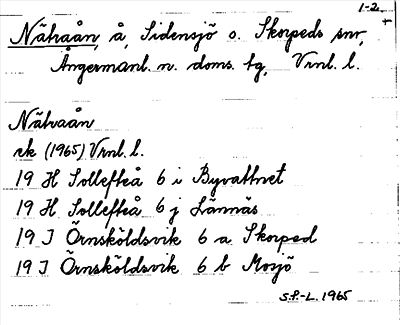 1-2.
Nätraån, å, Sidensjö o. Skorpeds snr,
Ångermanl. n. doms. tg, Vrnl. l.
Nätraån
rk (1965) Vrnl. l.
19 H Sollefteå 6 i Byvattnet
19 H Sollefteå 6 j Lännäs
19 J Örnsköldsvik 6 a Skorped
19 J Örnsköldsvik 6 b Mosjö
S.P.-L. 1965